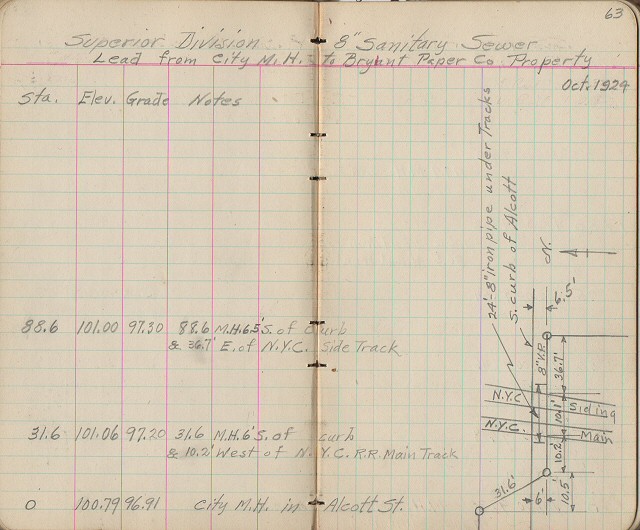 63
Superior Division 8" Sanitary Sewer
Lead from City M.H. to Bryant Paper Co Property
Oct. 1929
Sta. Elev. Grade Notes
24'-8" iron pipe under Tracks
S. curb of Alcott
N.
6.5'
88.6 101.00 97.30 88.6 M.H. 6.5' S. of curb
& 36.7' E. of N.Y.C. Side Track
8" V.P.
36.7'
N.Y.C.
Siding
10.1'
N.Y.C.
Main
31.6 101.06 97.20 31.6 M.H. 6' S. of curb
& 10.2' West of N.Y.C. R.R. Main Track
10.2'
31.6'
6'
10.5'
0 100.79 96.91 City M.H. in Alcott St.